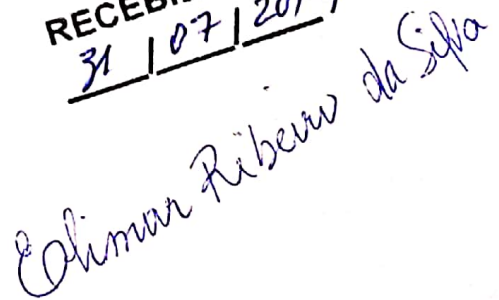 RECEBI
31 / 07 / 201
Edimar Ribeiro da Silva